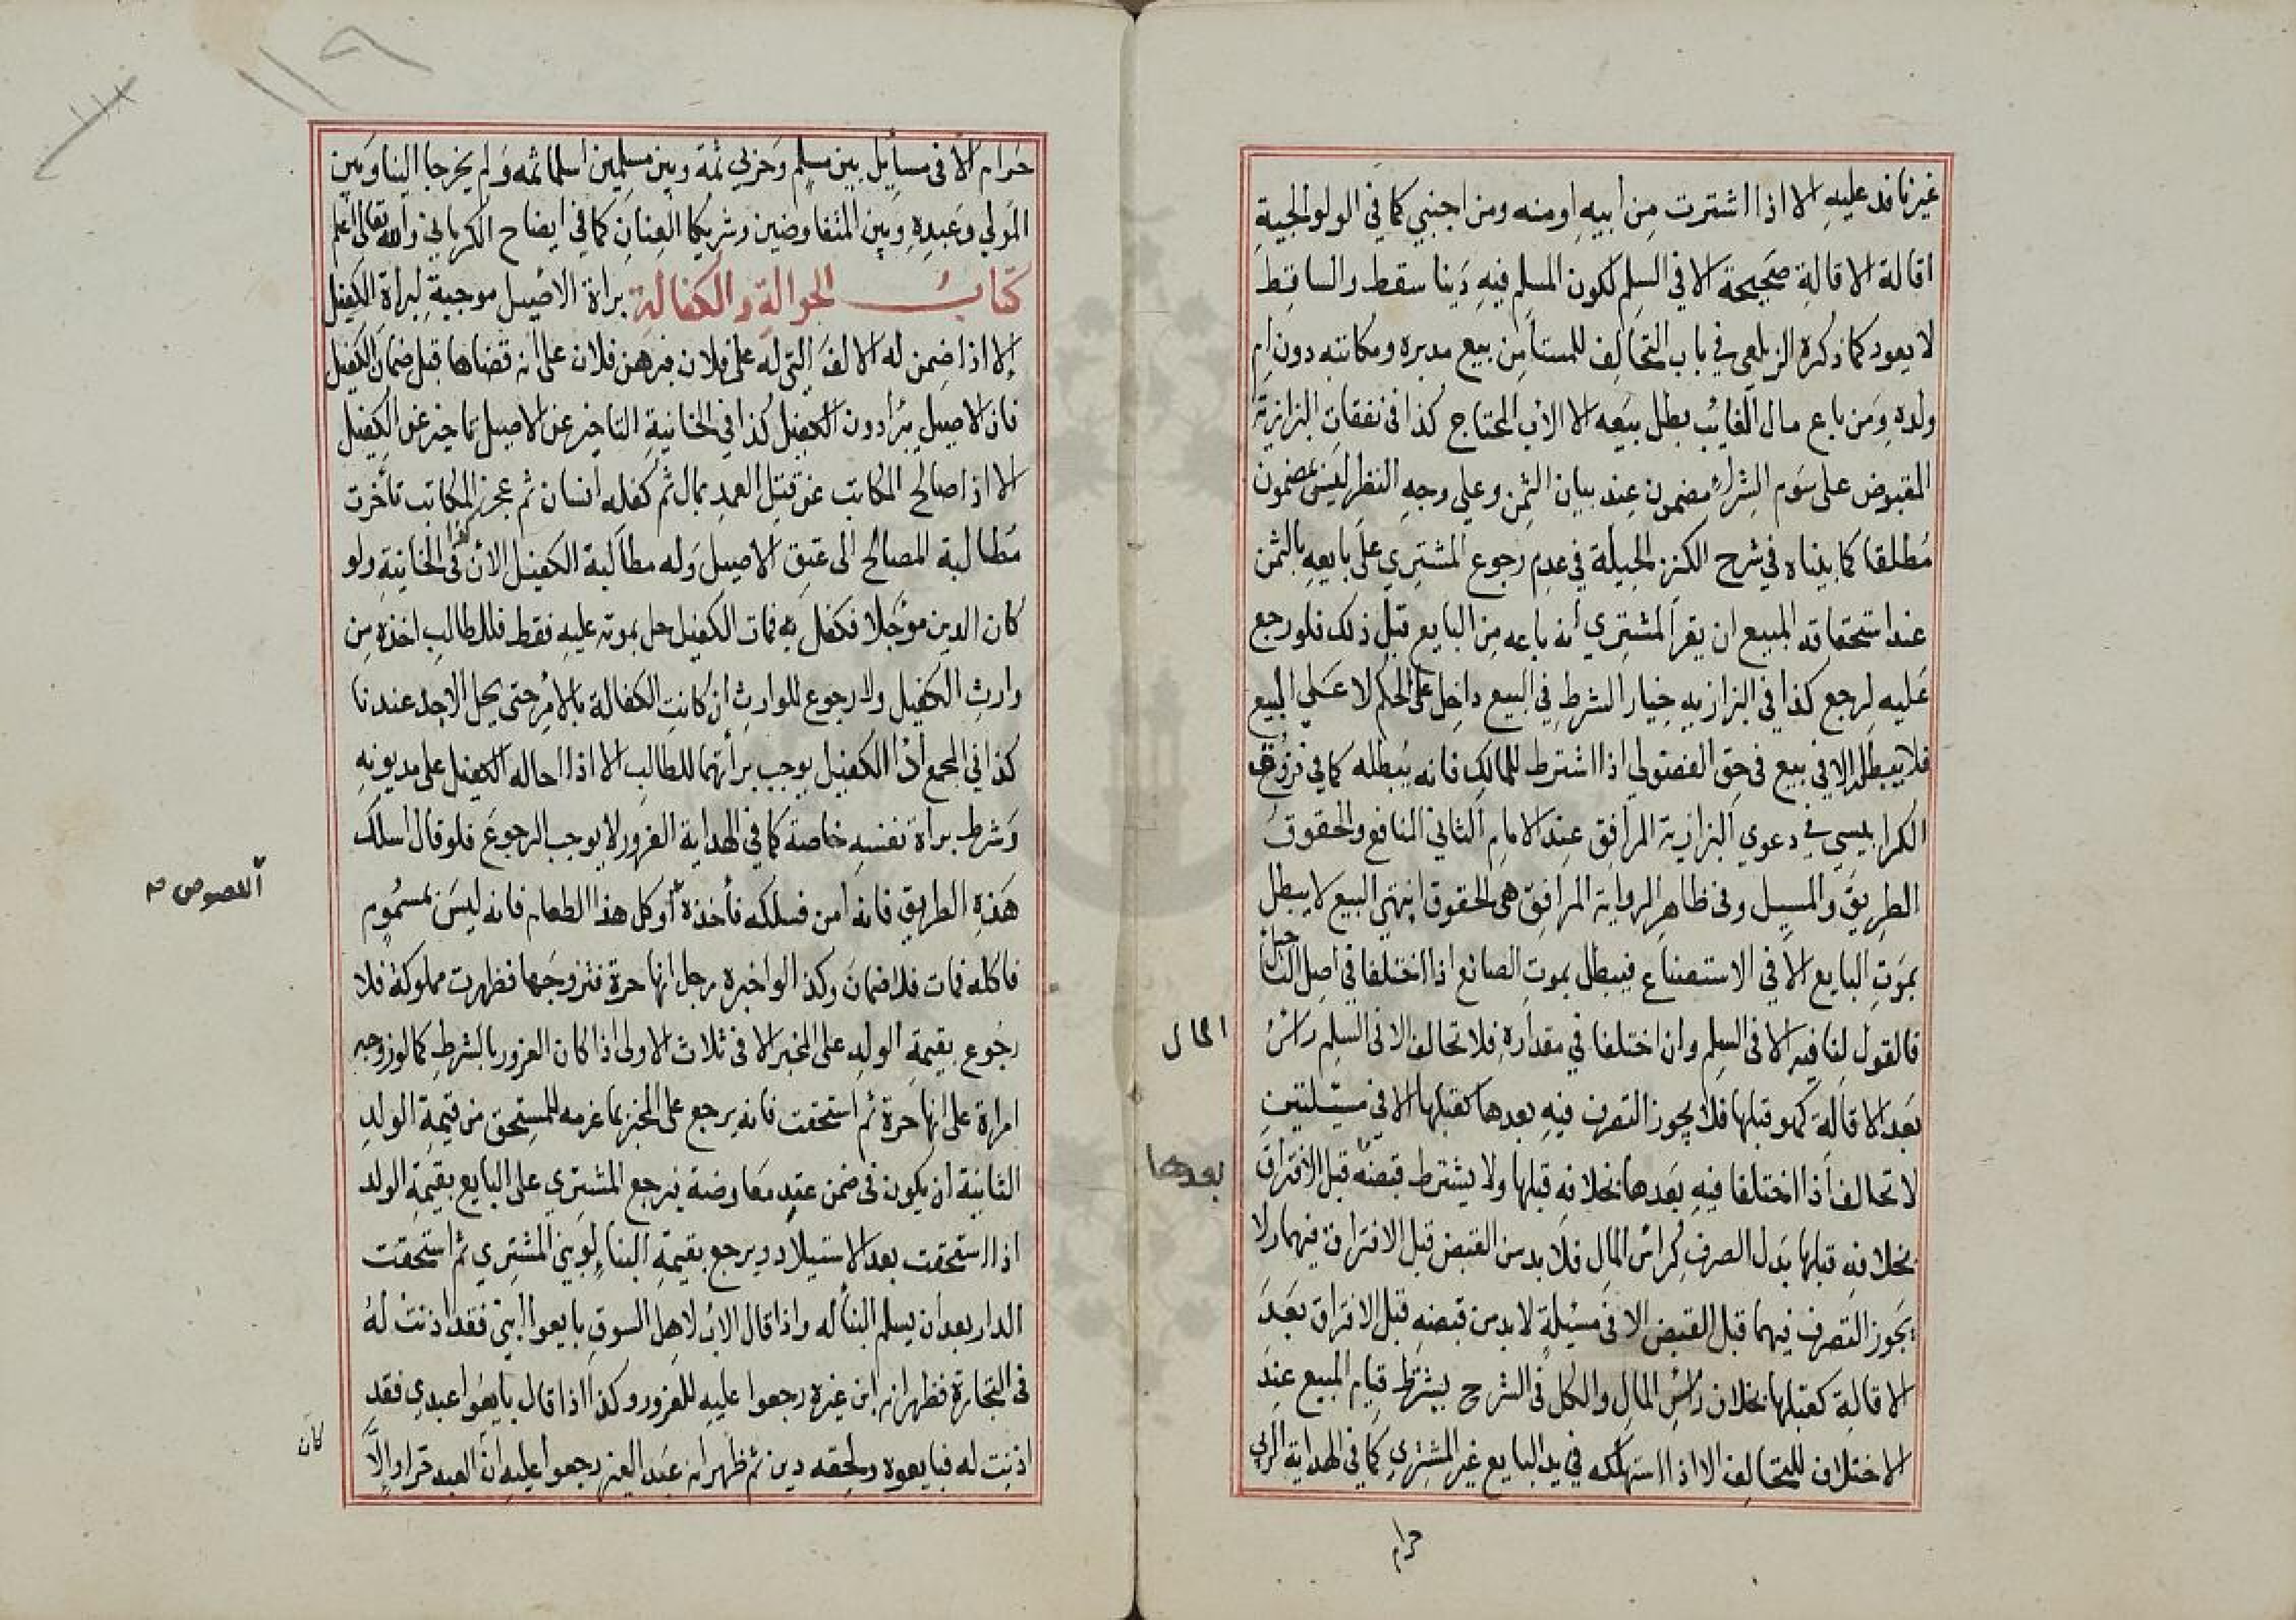 غير نافذ عليه الا اذا اشترت من ابيه او منه ومن اجنبي كما في الولوالجية
اقالة الاقالة صحيحة الا في السلم لكون المسلم فيه دينا سقط والساقط
لا يعود كما ذكره الزيلعي في باب التحالف للمستأمن بيع مدبره ومكاتبه دون ام
ولده ومن باع مال الغائب بطل بيعه الا الاب المحتاج كذا في نفقات البزازية
المقبوض على سوم الشراء مضمون عند بيان الثمن وعلى وجه النظر ليس بمضمون
مطلقا كما بيناه في شرح الكنز الحيلة في عدم رجوع المشتري على بايعه بالثمن
عند استحقاقه المبيع ان يقر المشتري انه باعه من البايع قبل ذلك فلو رجع
عليه لرجع كذا في البزازيه خيار الشرط في البيع داخل على الحكم لا على البيع
فلا يبطله الا في بيع في حق الفضولي اذا اشترط للمالك فانه يبطله كما في فروق
الكرابيسي في دعوي البزازية المرافق عند الامام الثاني المنافع والحقوق
الطريق والمسيل وفي ظاهر الرواية المرافق هى الحقوق انتهى البيع لا يبطل
بموت البايع الا في الاستصناع فيبطل بموت الصانع اذا اختلفا في اصل التأجيل
فالقول لنافيه الا في السلم وان اختلفا في مقداره فلا تحالف الا في السلم راس
المال
بعد الاقالة كهو قبلها فلا يجوز التصرف فيه بعدها كقبلها الا في مسئلتين
لا تحالف اذا اختلفا فيه بعدها بخلافه قبلها ولا يشترط قبضه قبل الافتراق
بعدها
بخلافه قبلها بدل الصرف كراس المال فلا بد من القبض قبل الافتراق فيهما ولا
يجوز التصرف فيهما قبل القبض الا في مسئلة لا بد من قبضه قبل الافتراق بعد
الاقالة كقبلها بخلاف راس المال والكل في الشرح يشترط قيام المبيع عند
الاختلاف للتحالف الا اذا استهلكه في يد البايع غير المشتري كما في الهداية الربى
حرام
حرام الا في مسايل بين مسلم وحربي ثمة وبين مسلمين اسلما ثمه ولم يخرجا الينا وبين
المولي وعبده وبين المتفاوضين وشريكا العنان كما في ايضاح الكرماني والله تعالى اعلم
كتاب الحوالة والكفالة براة الاصيل موجبة لبراة الكفيل
الا اذا ضمن له الالف التى له على فلان فبرهن فلان على انه قضاها قبل ضمان الكفيل
فان الاصيل يبرا دون الكفيل كذا في الخانية التاخير عن الاصيل تاخير عن الكفيل
الا اذا صالح المكاتب عن قتل العمد بمال ثم كفله انسان ثم عجز المكاتب تأخرت
مطالبة المصالح الى عتق الاصيل وله مطالبة الكفيل الان كذا في الخانية ولو
كان الدين مؤجلا فكفل به فمات الكفيل حل بموته عليه فقط فللطالب اخذه من
وارث الكفيل ولا رجوع للوارث ان كانت الكفالة بالامر حتى يحل الاجل عندنا
كذا في المجمع اداٌ الكفيل يوجب برأتهما للطالب الا اذا احاله الكفيل على مديونه
وشرط براة نفسه خاصة كما في الهداية الغرور لا يوجب الرجوع فلو قال اسلك
هذه الطريق فانه امن فسلكه فأخذه او كل هذا الطعام فانه ليس بمسموم
اللصوص صح
فاكله فمات فلا ضمان وكذا لو اخبره رجل انها حرة فتزوجها فظهرت مملوكة فلا
رجوع بقيمة الولد على المخبر الا في ثلاث الاولى اذا كان الغرور بالشرط كما لو زوجه
امراة على انها حرة ثم استحقت فانه يرجع على المخبر بما غرمه للمستحق من قيمة الولد
الثانية ان يكون في ضمن عقد معاوضة فيرجع المشتري على البايع بقيمة الولد
اذا استحقت بعد الاستيلاد ويرجع بقيمة البناء لو بنى المشتري ثم استحقت
الدار بعد ان يسلم البنا له واذا قال الاب لاهل السوق بايعوا ابني فقد اذنت له
في التجارة فظهر انه ابن غيره رجعوا عليه للغرور وكذا اذا قال بايعوا عبدي فقد
اذنت له فبايعوه ولحقه دين ثم ظهر انه عبد الغير رجعوا عليه ان العبد حرا والا
كان